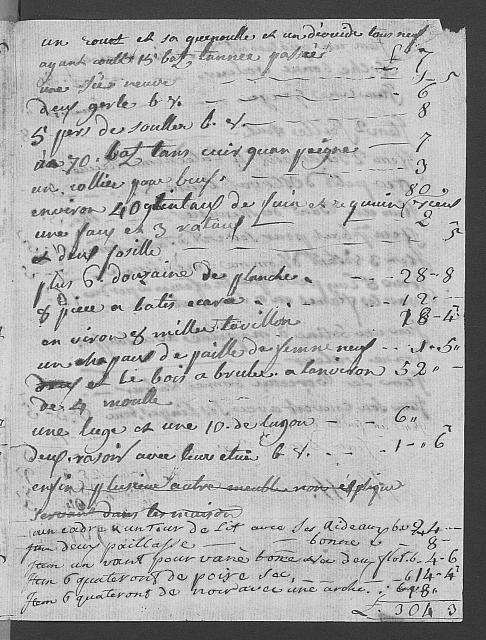 un rouet et sa quenouille et un dévide tous neuf
ayant coulté 15 bat. l'année passée £ 7
une siée neuve 1 - 5
deux gerle b. & 6
5 pers de soullier b. & 8
à 70. bat. tans cuir quan peigne 7
un collier pour beuf. 3
environ 40 quintaux de foin et requin 80
une faux et 3 rataux 2
et deux fosille 5
plus 6. douzaine de planche 28 - 8
8 pièce en batis 12 -
en viron 8 miller tavillon 18 - 4
un chapaux de paille de femme neuf 1 - 5
et le bois a bruler. a lanviron 52 -
de 4 moulle
une luge et une 10. de luzon 6
deux rasoir avec leur étui b. & 1 - 6
enfin plusieur autre meuble non espliqué
dans la maison
un cadre & un tour de lit avec ses rideaux bo 24 -
Item deux paillasse bonne 8 -
Item un vant pour vané bone avec deux 4 - 6
Item 6 quateront de poire sec, 14 - 4
Item 6 quateront de noix avec une arche 18 -
£. 304 3